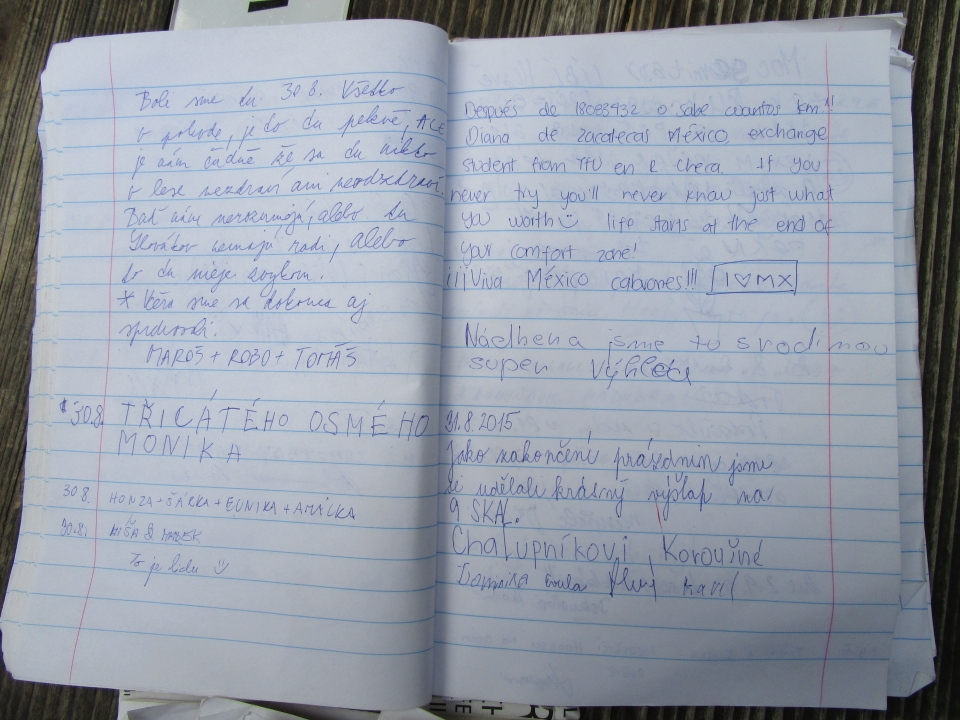 Boli sme tu 30.8. Všetko
v pohode, je to tu pekné, ALE
je nám čudné že sa tu nikto
v lese nezdraví ani neodzdraví.
Buď nám nerozumejú, alebo tu
Slovákov nemajú radi, alebo
to tu nieje zvykom.
* Včera sme sa dokonca aj
sprchovali.
MAROŠ + ROBO + TOMÁŠ
30.8. TŘICÁTÉHO OSMÉHO
MONIKA
30.8. HONZA + ŠÁRKA + EUNIKA + AMÁLKA
30.8. MÍŠA & MAREK
To je lidu
Después de 18083432 o sabe cuantos km!!
Diana de Zacatecas México exchange
student from TTU en R Checa. If you
never try you'll never know just what
you worth life starts at the end of
your comfort zone!
¡¡¡Viva México cabrones!!! I ♡ MX
Nádhera jsme tu s rodinou
super výhled
31.8.2015
Jako zakončení prázdnin jsme
si udělali krásný výšlap na
9 SKAL.
Chalupníkovi, Koroužné